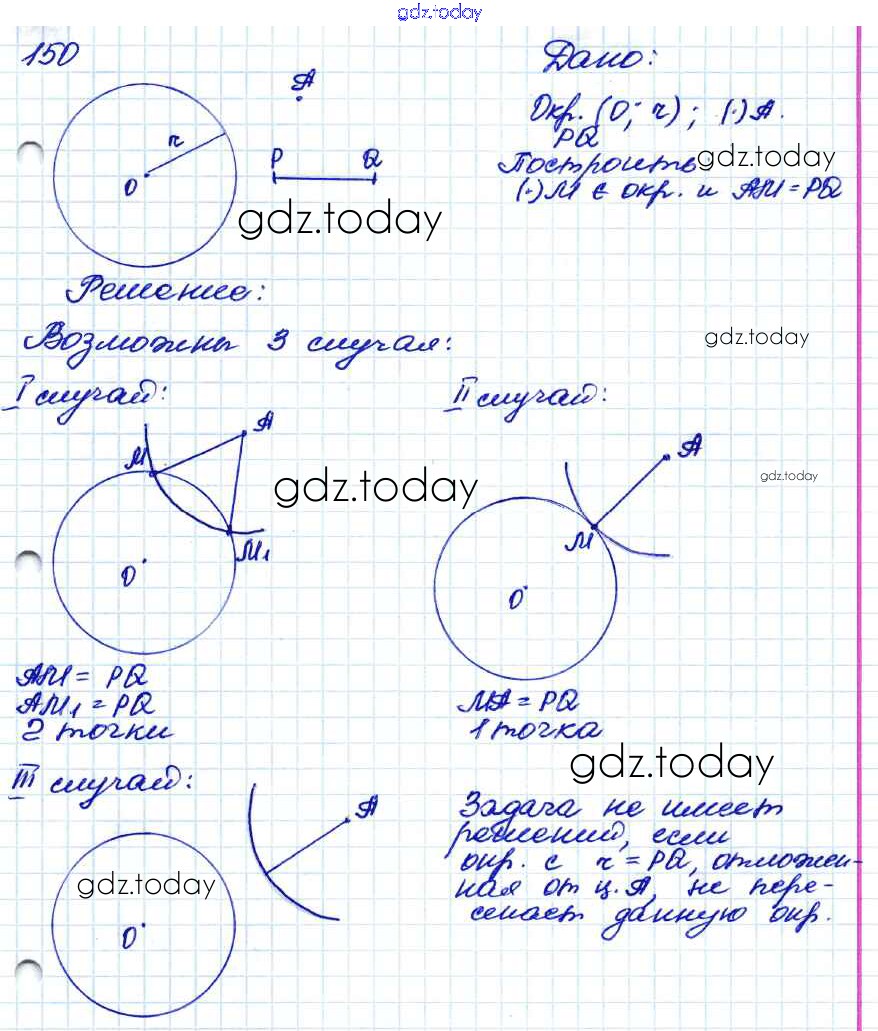 gdz.today
150
Дано:
A
r
O
P Q
Окр. (O; r); (·) A.
PQ
gdz.today
Построить
(·) M ∈ окр. и AM = PQ
gdz.today
Решение:
Возможны 3 случая:
gdz.today
I случай:
II случай:
A
M
M₁
O
gdz.today
A
M
O
gdz.today
AM = PQ
AM₁ = PQ
2 точки
MA = PQ
1 точка
gdz.today
III случай:
A
O
gdz.today
Задача не имеет
решений, если
окр. с r = PQ, отложен-
ная от ц. A, не пере-
секает данную окр.